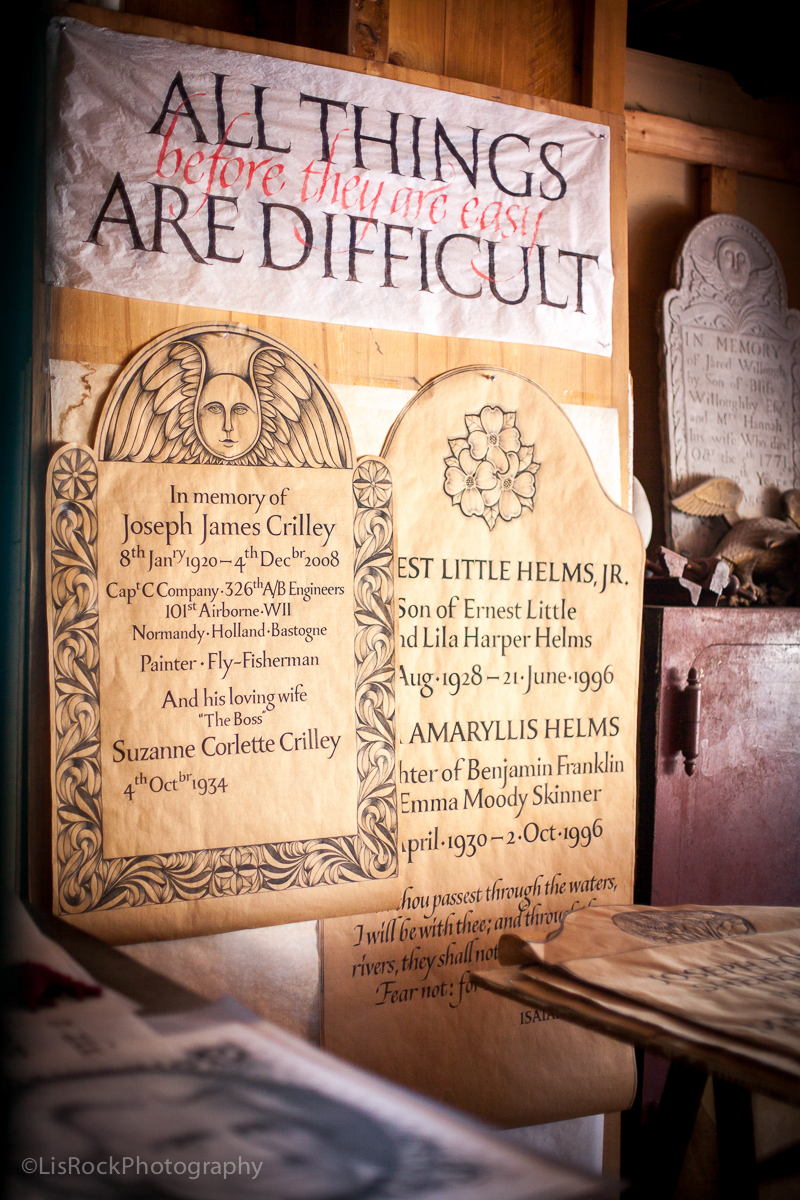 ALL THINGS
before they are easy
ARE DIFFICULT
In memory of
Joseph James Crilley
8th Janry 1920 – 4th Decbr 2008
Capt C Company · 326th A/B Engineers
101st Airborne · WII
Normandy · Holland · Bastogne
Painter · Fly-Fisherman
And his loving wife
"The Boss"
Suzanne Corlette Crilley
4th Octbr 1934
EST LITTLE HELMS, JR.
Son of Ernest Little
nd Lila Harper Helms
Aug · 1928 – 21 · June · 1996
AMARYLLIS HELMS
hter of Benjamin Franklin
Emma Moody Skinner
April · 1930 – 2 · Oct · 1996
hou passest through the waters,
I will be with thee; and through
rivers, they shall not
Fear not: for
ISAIA
IN MEMORY
of Jared Willough
by Son of Bliss
Willoughby Esq
and Mrs Hannah
his wife Who died
Oct the 4 1771
©LisRockPhotography